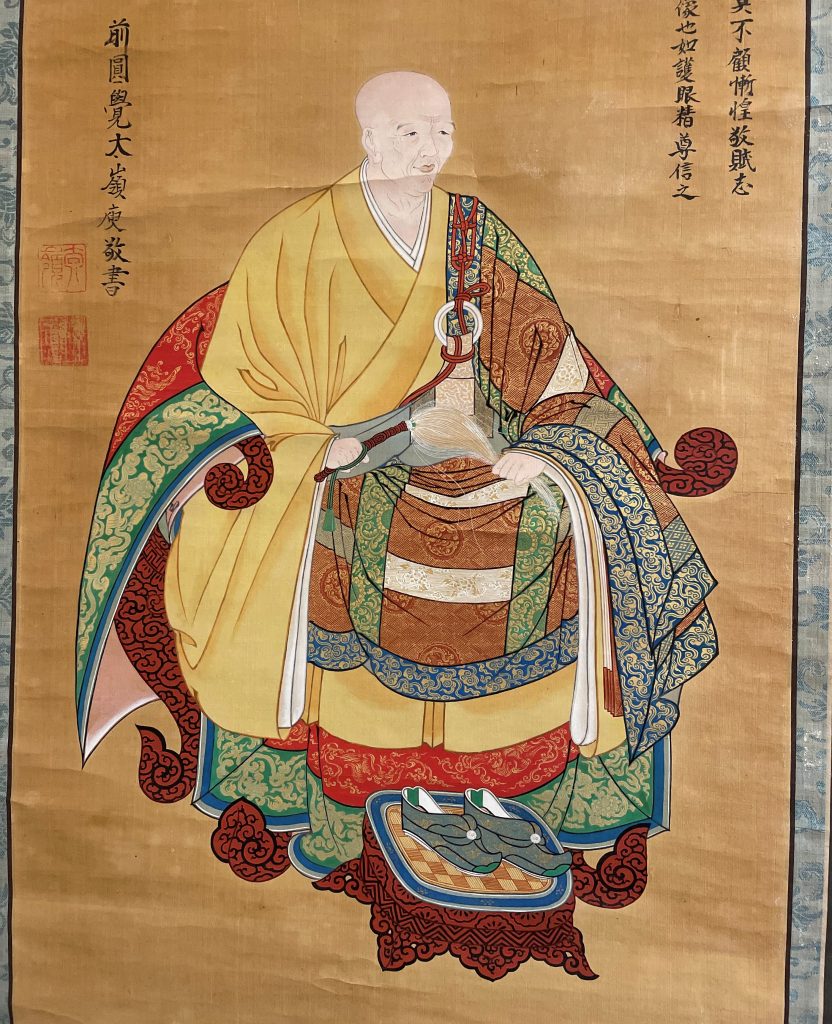 不顧慚惶敬賦志
像也如護眼精尊信之
前圓覺太嶺庾敬書